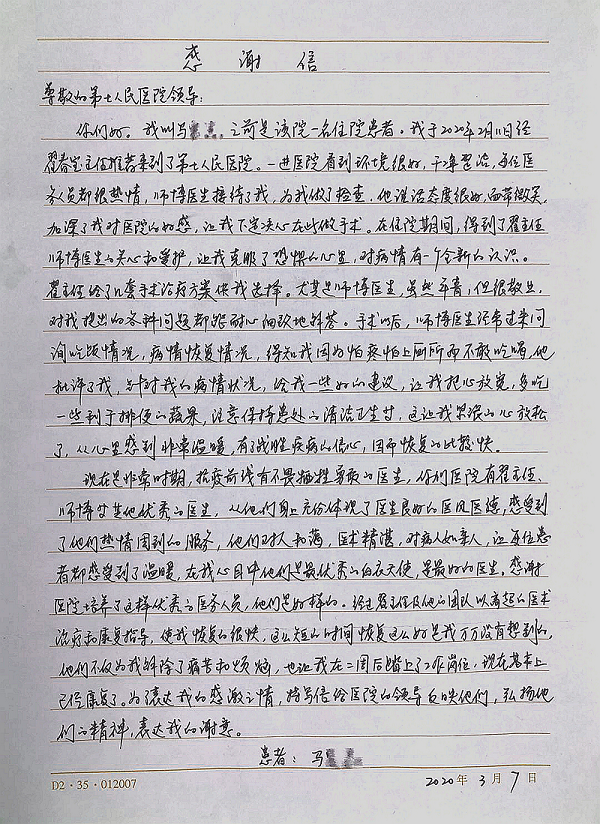 感谢信
尊敬的第七人民医院领导:
你们好。我叫马 之前是该院一名住院患者。我于2020年2月11日经
翟春宝主任推荐来到了第七人民医院。一进医院看到环境很好,干净整洁,每位医
务人员都很热情,师博医生接待了我,为我做了检查,他说话态度很好,面带微笑,
加深了我对医院的好感,让我下定决心在此做手术。在住院期间,得到了翟主任
师博医生的关心和爱护,让我克服了恐惧的心里,对病情有一个全新的认识。
翟主任给了几套手术治疗方案供我选择。尤其是师博医生,虽然年青,但很敬业,
对我提出的各种问题都能耐心细致地解答。手术以后,师博医生经常过来问
询吃饭情况,病情恢复情况,得知我因为怕疼怕上厕所而不敢吃喝,他
批评了我,针对我的病情状况,给我一些好的建议,让我把心放宽,多吃
一些利于排便的蔬果,注意保持患处的清洁卫生等,这让我紧张的心放松
了,从心里感到非常温暖,有了战胜疾病的信心,因而恢复的比较快。
现在是非常时期,抗疫前线有不畏牺牲勇敢的医生,你们医院有翟主任、
师博及其他优秀的医生,从他们身上充份体现了医生良好的医风医德,感受到
了他们热情周到的服务,他们对人和蔼,医术精湛,对病人如亲人,让每位患
者都感受到了温暖,在我心目中他们是最优秀的白衣天使,是最好的医生。感谢
医院培养了这样优秀的医务人员,他们是好样的。经过翟主任及他的团队以高超的医术
治疗和康复指导,使我恢复的很快,这么短的时间恢复这么好是我万万没有想到的,
他们不仅为我解除了病苦和烦恼,也让我在二周后踏上了工作岗位,现在基本上
已经康复了。为了表达我的感激之情,特写信给医院的领导反映他们,弘扬他
们的精神,表达我的谢意。
患者:马
D2·35·012007 2020年3月7日